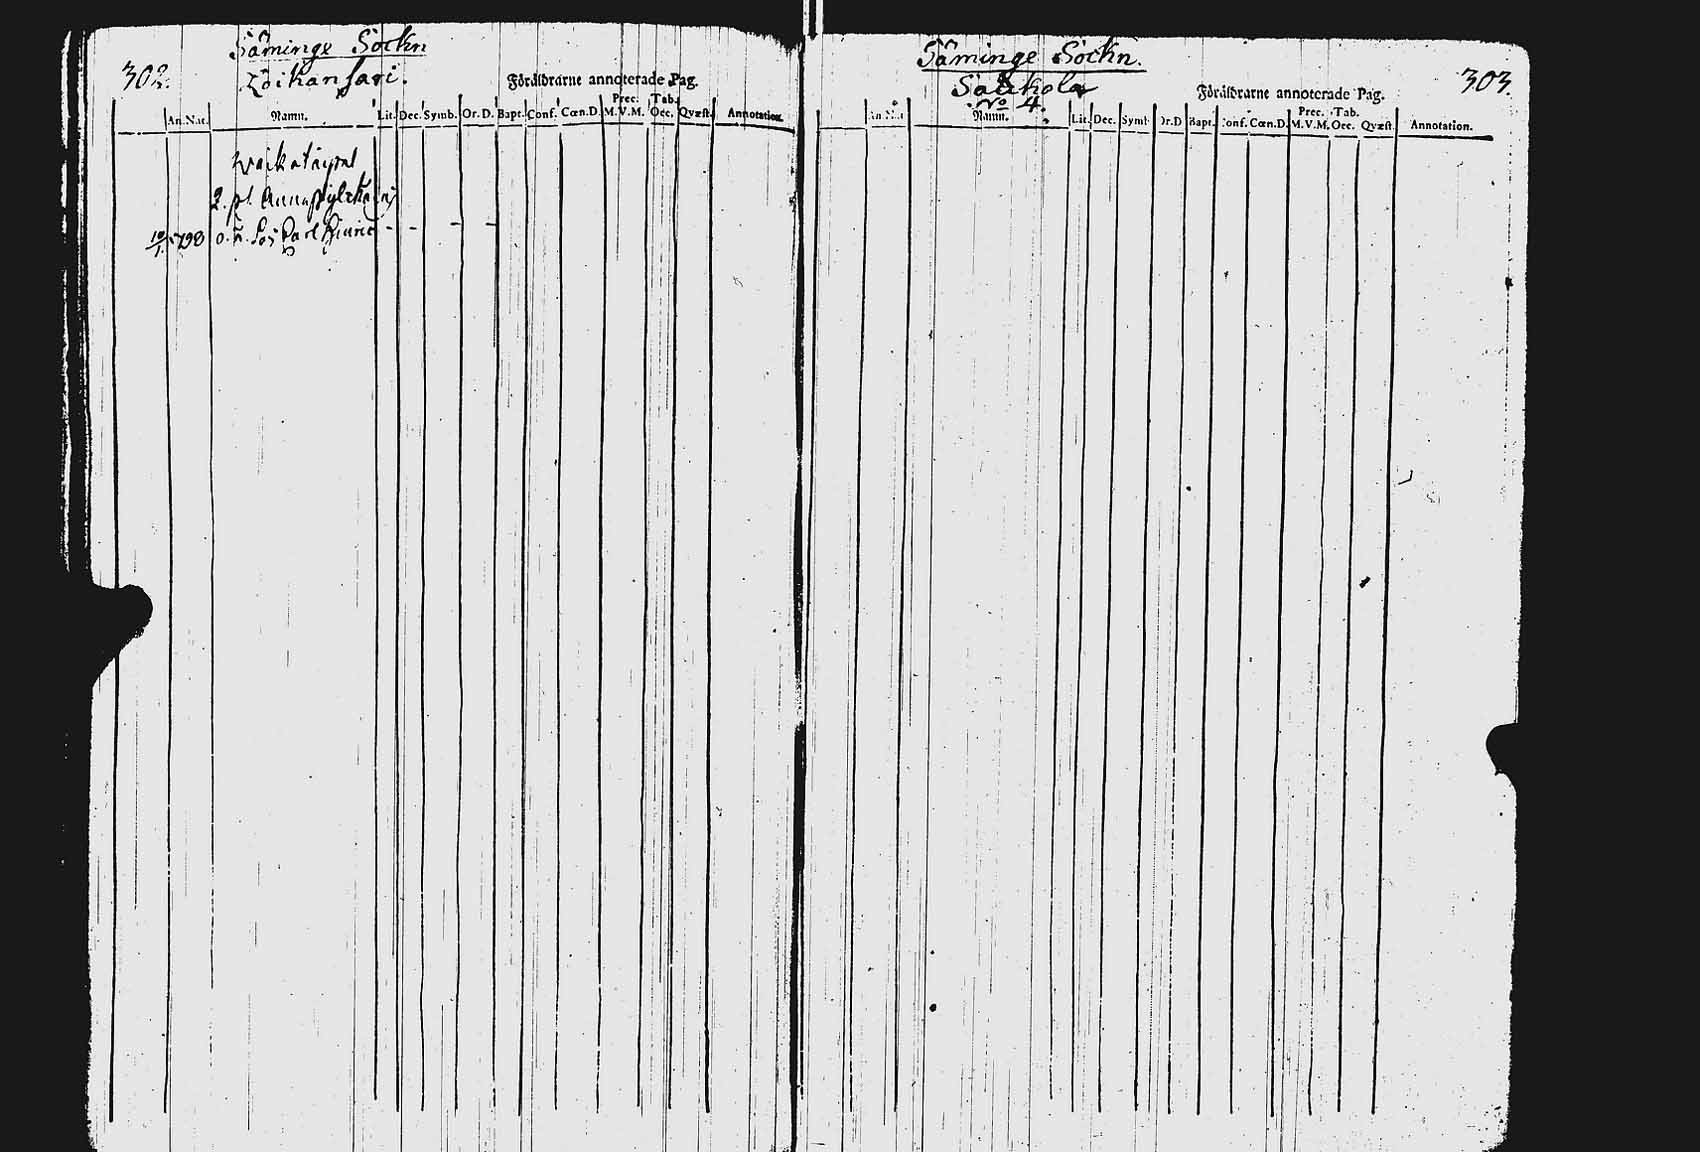 Säminge Sockn
302.
Loikansari.
Föräldrarne annoterade Pag.
An. Nat. Namn. Lit. Dec. Symb. Or. D. Bapt. Conf. Cœn. D. Prec. M. V. M. Tab. Oec. Qvæst. Annotation.
2.
10/1. 1798
Säminge Sockn.
303.
Saukola
No 4.
Föräldrarne annoterade Pag.
An. Nat. Namn. Lit. Dec. Symb. Or. D. Bapt. Conf. Cœn. D. Prec. M. V. M. Tab. Oec. Qvæst. Annotation.